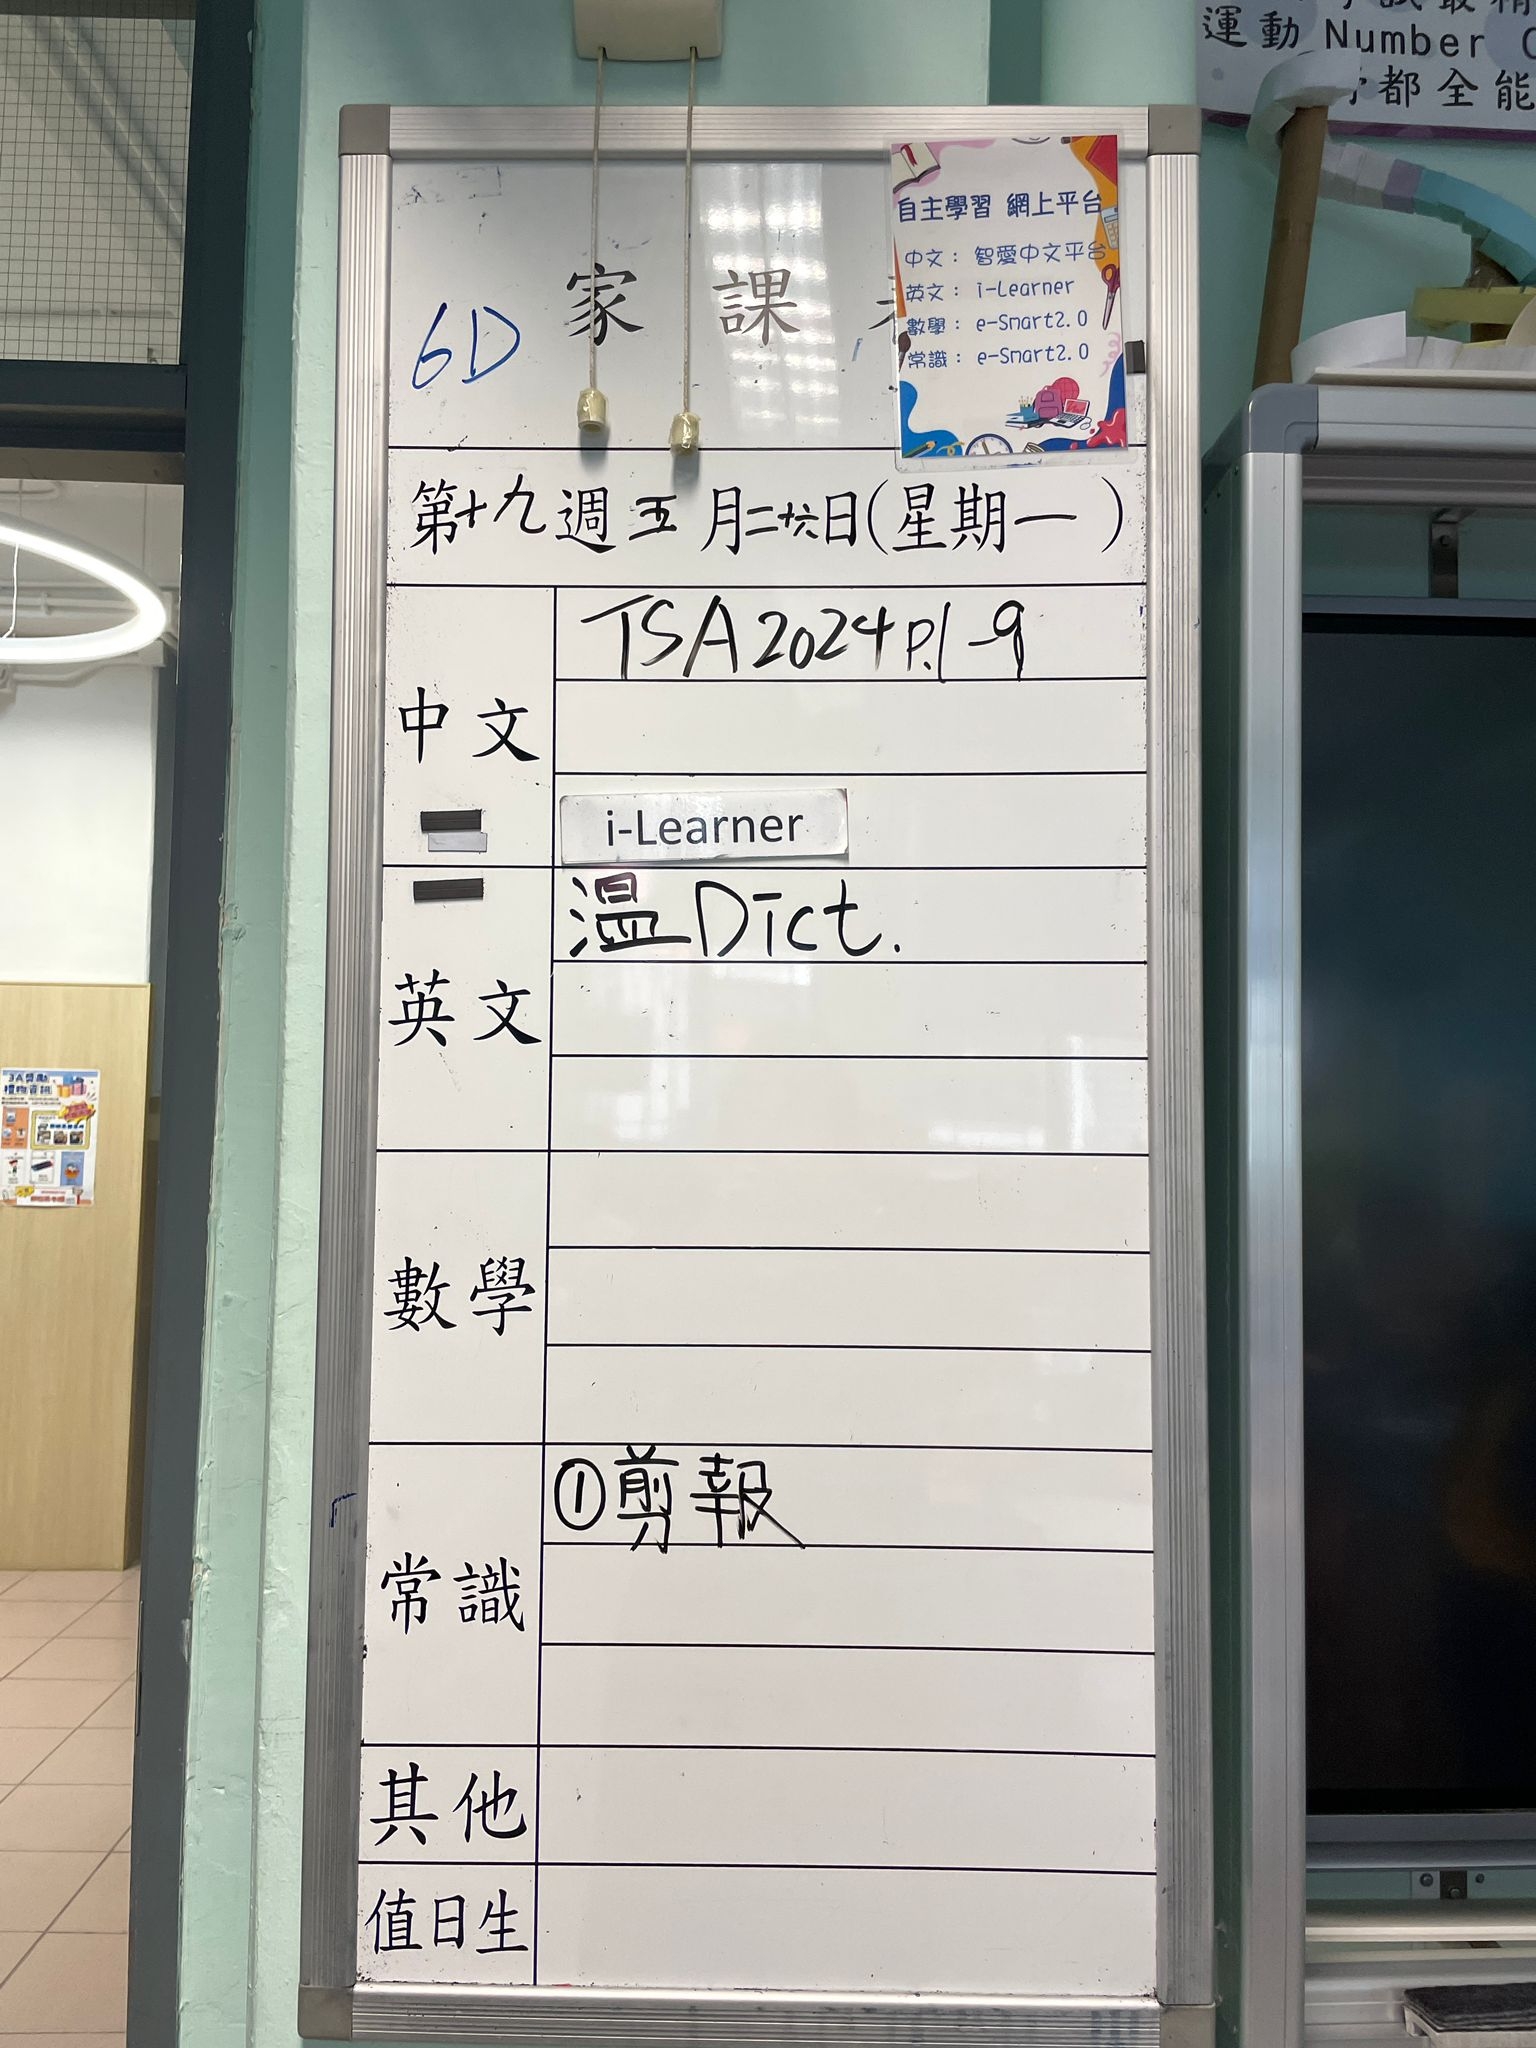 運動 Number
都全能
家課
6D
自主學習 網上平台
中文：智愛中文平台
英文：i-Learner
數學：e-Smart2.0
常識：e-Smart2.0
第十九週五月二十六日(星期一)
中文
TSA 2024 P.1-9
i-Learner
英文
溫 Dict.
數學
常識
①剪報
其他
值日生